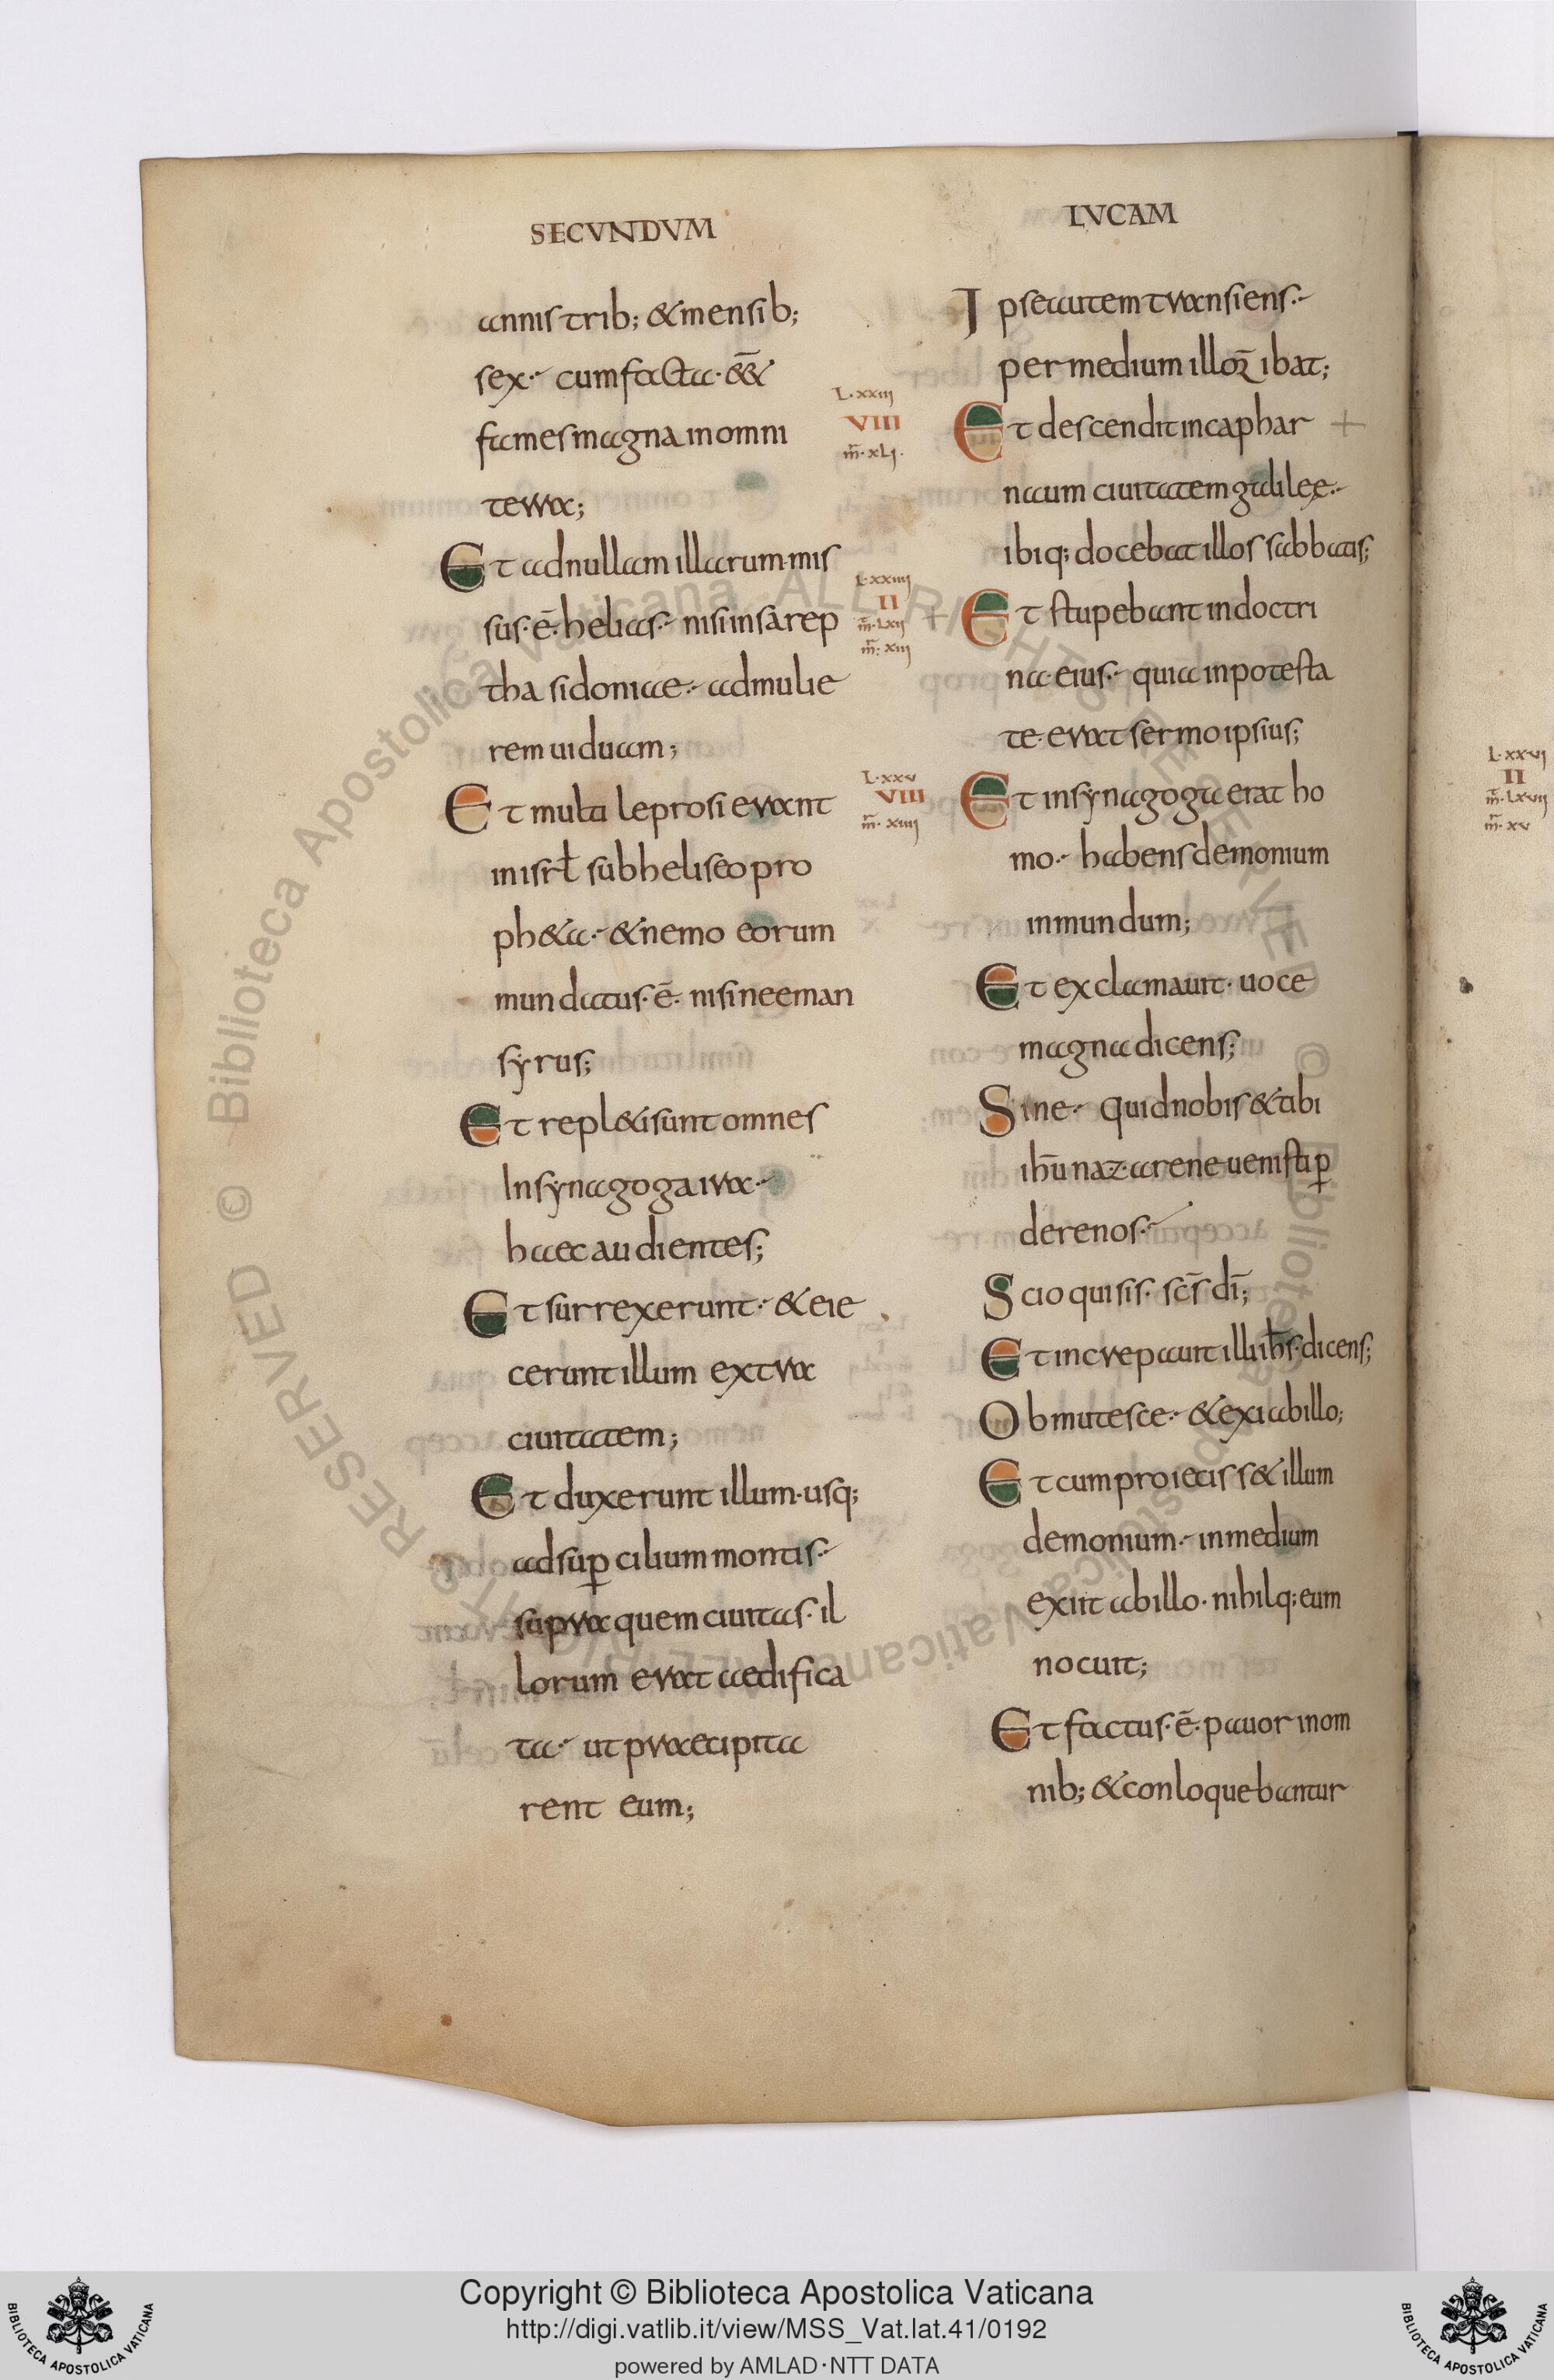 SECVNDVM
annis trib; & mensib;
sex. cum facta. e͞e&
fames magna in omni
terra;
Et ad nullam illarum. mis
sus. ē. helias. nisi in sarep
tha sidoniae. ad mulie
rem uiduam;
Et multi leprosi erant
in isrl̄ sub heliseo pro
ph&a. & nemo eorum
mundatus. ē. nisi neeman
syrus;
Et repl&i sunt omnes
In synagoga ira.
haec audientes;
Et surrexerunt. & eie
cerunt illum extra
ciuitatem;
Et duxerunt illum. usq;
ad sup̱cilium montis.
supra quem ciuitas. il
lorum erat aedifica
ta. ut praecipita
rent eum;
LVCAM
Ipse autem transiens.
per medium illoꝝ ibat;
L.xxiii
VIII
m̄.xli.
Et descendit in caphar +
naum ciuitatem galileę.
ibiq; docebat illos sabbatis;
L.xxiiii
II
m̄.lxii
m̄.xiii
+ Et stupebant in doctri
na. eius. quia in potesta
te. erat sermo ipsius;
L.xxv
VIII
m̄.xiiii
Et in synagoga erat ho
mo. habens demonium
inmundum;
Et exclamauit. uoce
magna dicens;
Sine. quid nobis & tibi
ih̄u nazarene uenisti ꝑ
dere nos.
Scio qui sis. sc̄s dī;
Et increpauit illū ih̄s. dicens;
Obmutesce. & exi ab illo;
Et cum proieciss& illum
demonium. in medium
exiit ab illo. nihilq; eum
nocuit;
Et factus. ē. pauor in om
nib; & conloquebantur
L.xxvi
II
m̄.lxvii
m̄.xv
© Biblioteca Apostolica Vaticana ALL RIGHTS RESERVED © Biblioteca Apostolica Vaticana ALL RIGHTS RESERVED
Copyright © Biblioteca Apostolica Vaticana
http://digi.vatlib.it/view/MSS_Vat.lat.41/0192
powered by AMLAD·NTT DATA
BIBLIOTECA APOSTOLICA VATICANA
BIBLIOTECA APOSTOLICA VATICANA